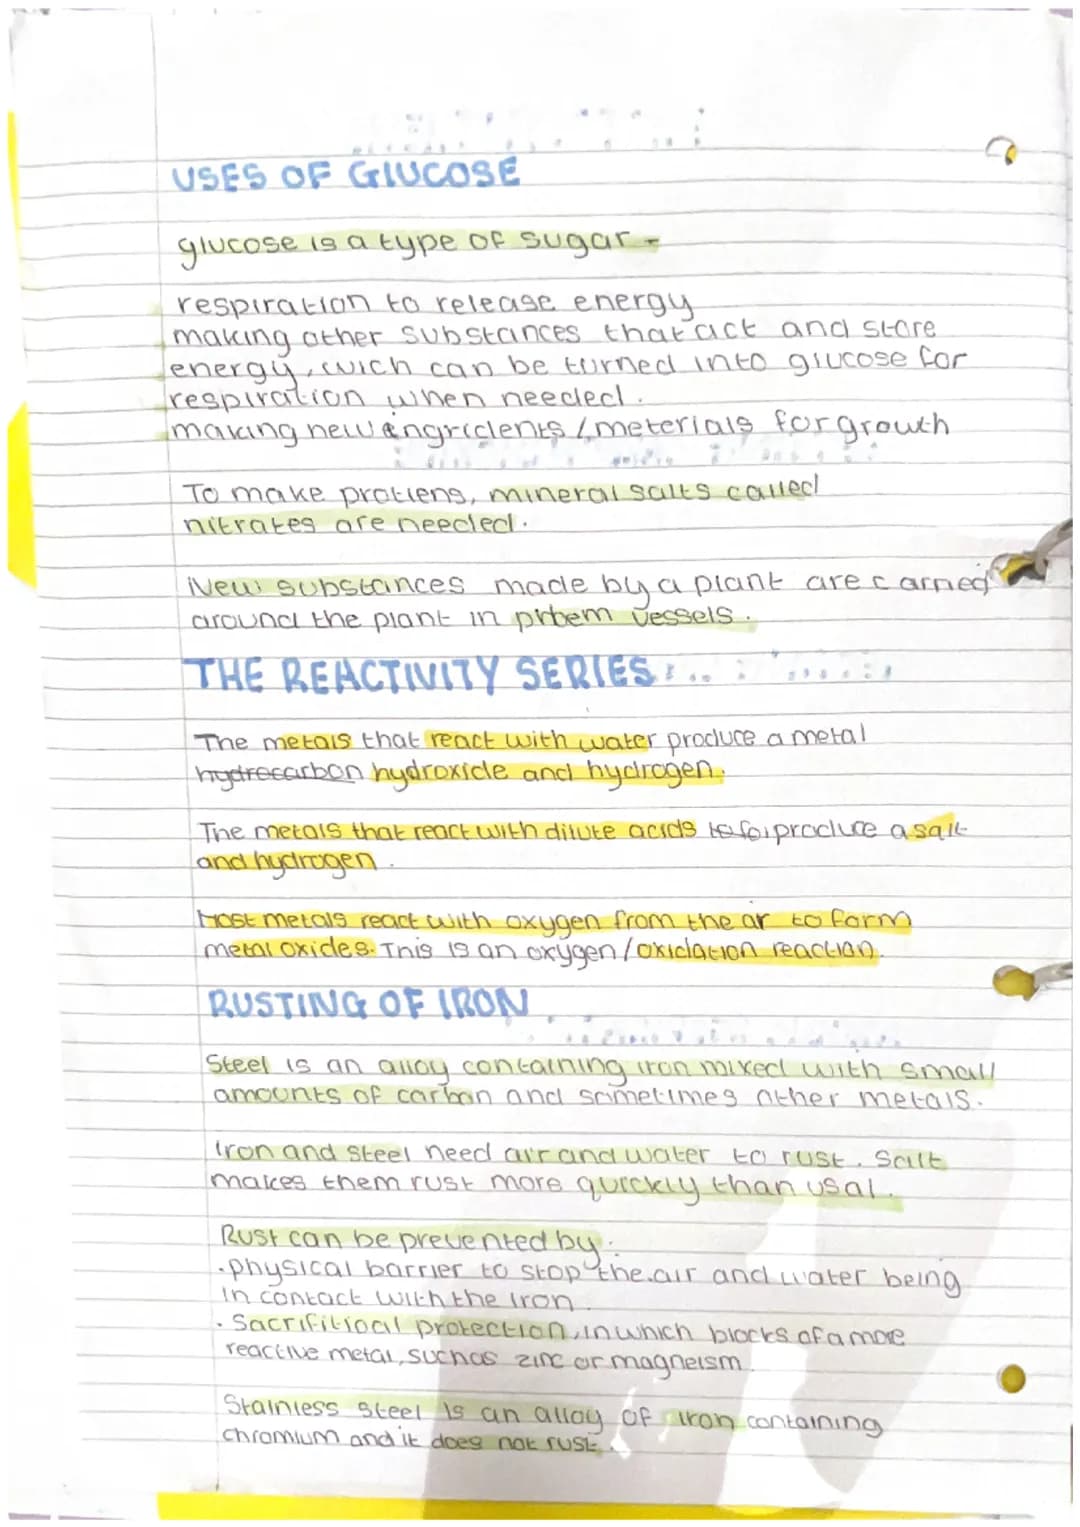 USES OF GlUCOSE
glucose is a type of sugar -
respiration to release energy
making other substances that act and store
energy, wich can be turned into glucose for
respiration when needed.
making new engridents / meterials for growth
To make protiens, mineral salts called
nitrates are needed.
New substances made by a plant are carried
around the plant in vessels.
THE REACTIVITY SERIES
The metals that react with water produce a metal
hydrocarbon hydroxide and hydrogen.
The metals that react with dilute acids to produce a salt
and hydrogen.
Most metals react with oxygen from the ar to form
metal oxides. This is an oxygen / oxidation reaction.
RUSTING OF IRON
Steel is an alloy containing iron mixed with small
amounts of carbon and sometimes other metals.
Iron and steel need air and water to rust. Salt
makes them rust more quickly than usal.
Rust can be prevented by:
· physical barrier to stop the air and water being
in contact with the iron.
· Sacrifitioal protection, in which blocks of a more
reactive metal, such as zinc or magneism.
Stainless steel is an alloy of iron containing
chromium and it does not rust.